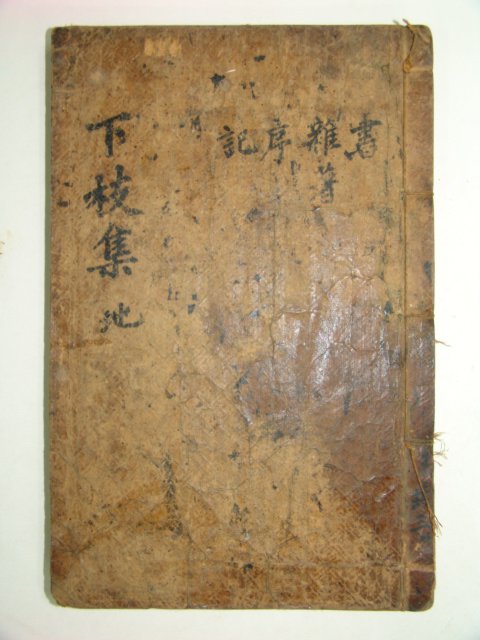 書
雜著
序
記
下枝集 地